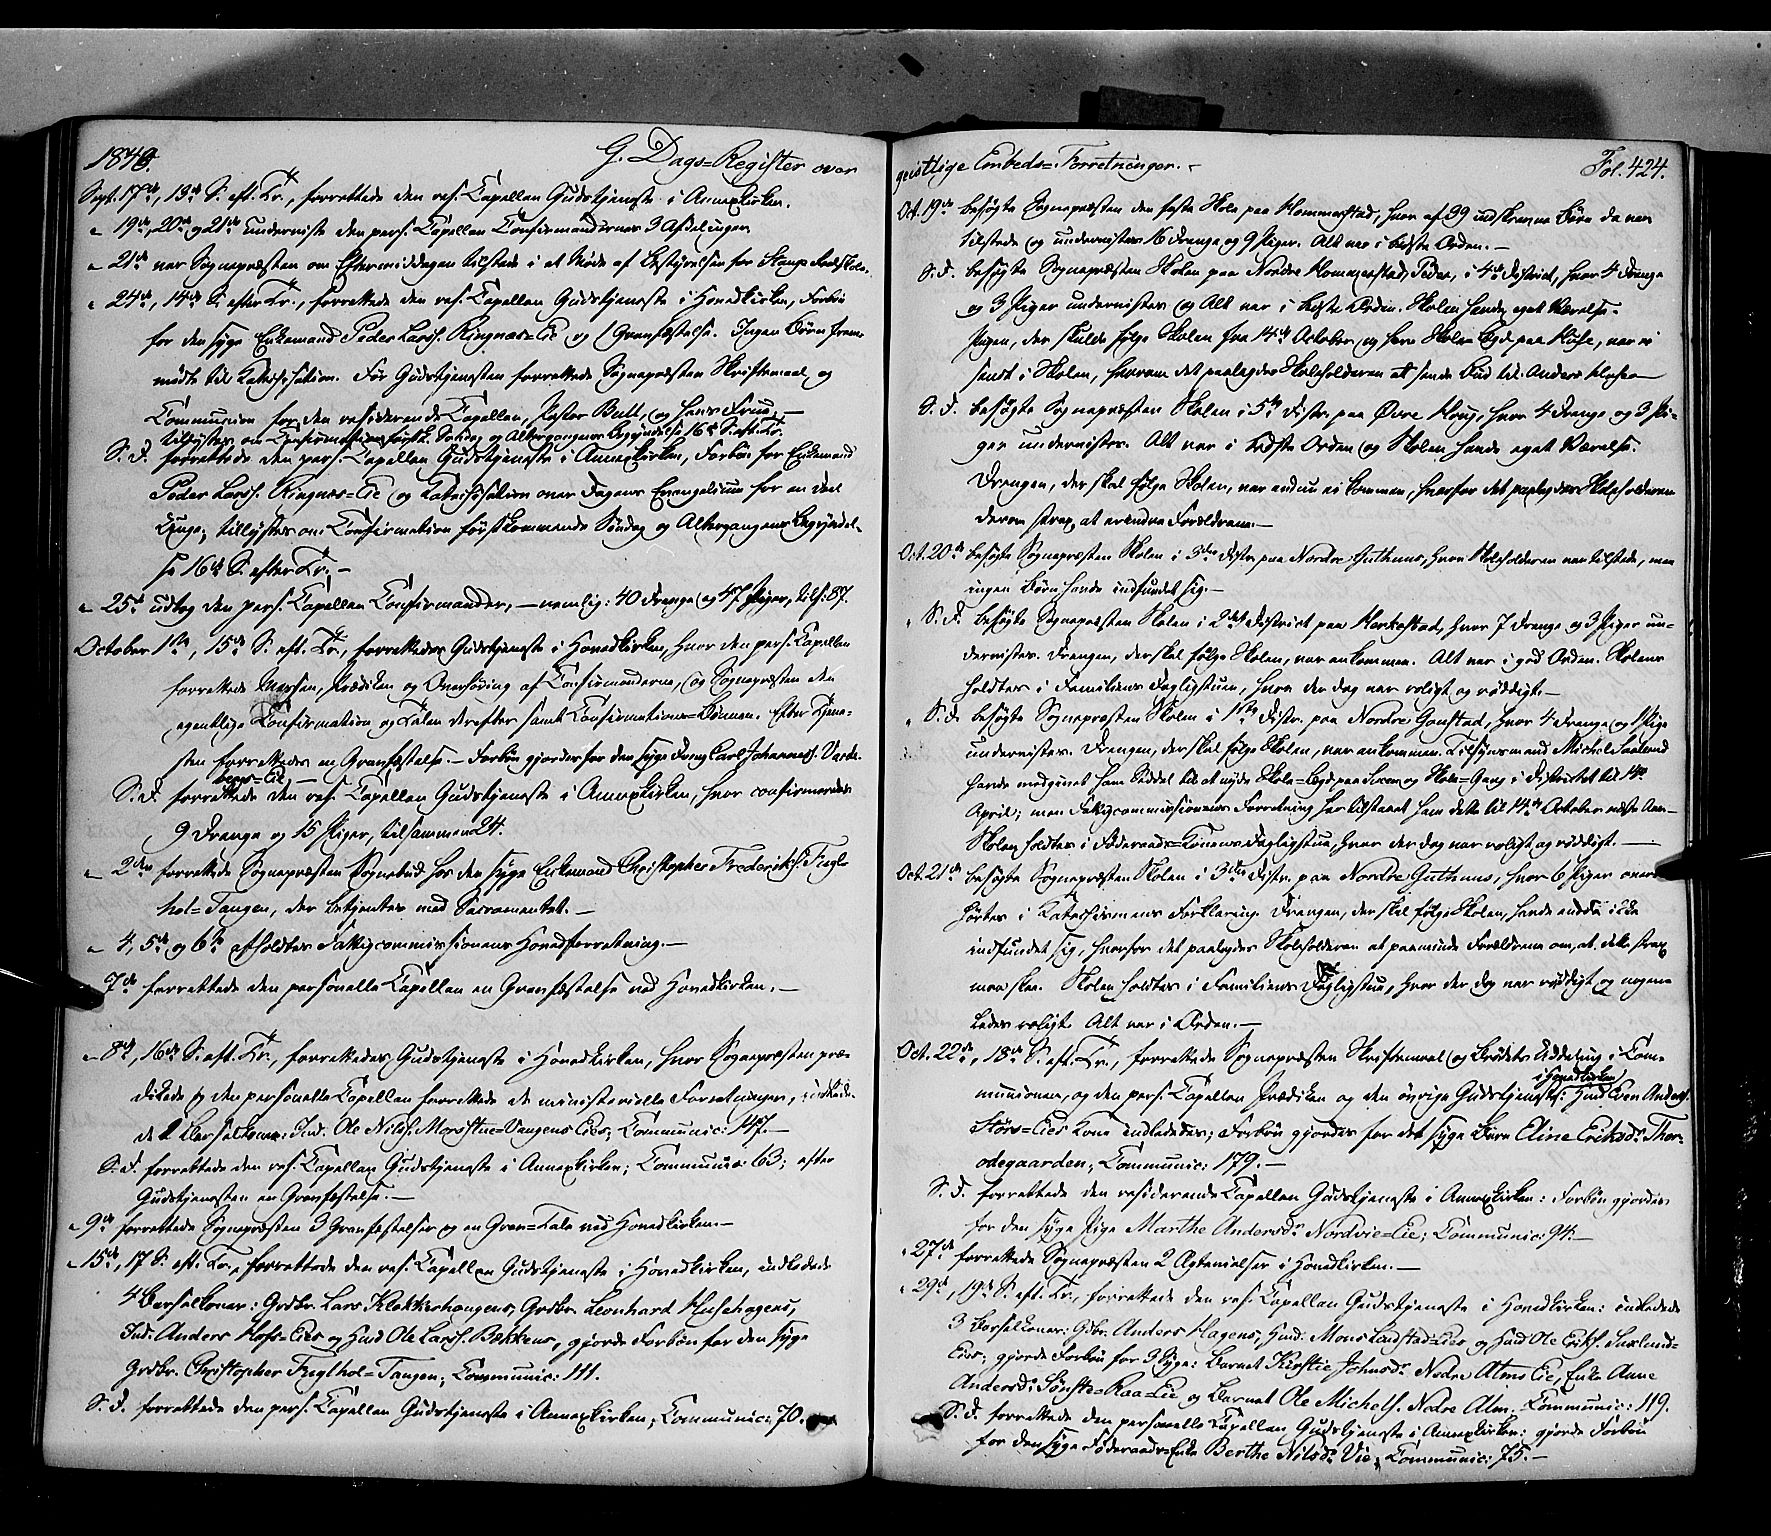 1848. G. Dags=Register over
Sept. 17de, 13de S. eft. Tr., forrettede den res. Capellan Gudstjeneste i Annexkirken.
" 19de, 20de og 21de underviste den pers. Capellan Confirmandernes 3 Afdelinger.
" 21de var Sognepræsten om Eftermiddagen tilstede i et Møde af Bestyrelsen for Stange
" 24de, 14de S. efter Tr., forrettede den res. Capellan Gudstjeneste i Hovedkirken, Forbøn
for den syge Enkemand Peder Larss. Ringnæs=Eie og 1 Gravfæstelse. Ingen Børn frem
mødte til Katechisation. Før Gudstjenesten forrettede Sognepræsten Skriftemaal og
Communion for den residerende Capellan, Pastor Bull, og hans Frue; —
tillystes om Confirmation førstk. Søndag og Altergangenes Begyndelse 16de S. eft. Tr.
S. D. forrettede den pers. Capellan Gudstjeneste i Annexkirken, Forbøn for Enkemand
Peder Larss. Ringnæs=Eie og Katechisation over Dagens Evangelium for en deel
Unge; tillystes om Confirmation førstkommende Søndag og Altergangenes Begyndel-
se 16de S. efter Tr. —
" 25de udtog den pers. Capellan Confirmander, — nemlig: 40 Drenge og 47 Piger, tils: 87.
October 1ste, 15de S. eft. Tr., forrettedes Gudstjeneste i Hovedkirken, hvor den pers. Capellan
forrettede Messen, Prædiken og Overhøring af Confirmanderne, og Sognepræsten den
egentlige Confirmation og Talen derefter samt Confirmations=Bønnen. Efter Tjene-
sten forrettedes en Gravfæstelse. — Forbøn gjordes for den syge Dreng Carl Johanness. Varde-
bergs=Eie. —
S. D. forrettede den res. Capellan Gudstjeneste i Annexkirken, hvor confirmeredes
9 Drenge og 15 Piger, tilsammen 24.
" 2den forrettede Sognepræsten Sognebud hos den syge Enkemand Christopher Frederiks. Fugl-
hol=Tangen, der betjentes med Sacramentet. —
" 4, 5te og 6te afholdtes Fattigcommissionens Hovedforretning. —
" 7de forrettede den personelle Capellan en Gravfæstelse ved Hovedkirken. —
" 8de, 16de S. eft. Tr., forrettedes Gudstjeneste i Hovedkirken, hvor Sognepræsten præ-
dikede og den personelle Capellan forrettede de ministerielle Forretninger, indlede-
de 1 Barselkone: Ind. Ole Nilss. Morstue=Vangens Eies; Communic: 147. —
S. D. forrettede den res. Capellan Gudstjeneste i Annexkirken; Communic: 63; efter
Gudstjenesten en Gravfæstelse. —
" 9de forrettede Sognepræsten 3 Gravfæstelser og en Grav=Tale ved Hovedkirken. —
" 15de, 17 S. eft. Tr., forrettede den res. Capellan Gudstjeneste i Hovedkirken, indledede
4 Barselkoner: Grdbr. Lars Klokkerhaugens, Grdbr. Leonhard Husehagens,
Ind. Anders Hose=Eies og Husmd Ole Larss. Bækkens, gjorde Forbøn for den syge
Grdbr. Christopher Fuglhol=Tangen; Communic: 111.
S. D. forrettede den pers. Capellan Gudstjeneste i Annexkirken; Communic: 70.
geistlige Embeds=Forretninger. Fol. 424.
Oct. 19de besøgte Sognepræsten den faste Skole paa Hommerstad, hvor af 39 indskrevne Børn da var
tilstede og undervistes 16 Drenge og 9 Piger. Alt var i bedste Orden. —
S. D. besøgte Sognepræsten Skolen paa Nordre Hommerstad, i 4de District, hvor 4 Drenge
og 3 Piger undervistes og Alt var i bedste Orden. Skolen havde eget Værelse.
Pigen, der skulde følge Skolen fra 14de October og have Skole=Lægd paa Hose, var ei
sendt i Skolen, hvorom det paalagdes Skoleholderen at sende Bud til Anders Hose —
S. D. besøgte Sognepræsten Skolen i 5te Distr. paa Øvre Houg, hvor 4 Drenge og 3 Pi-
ger undervistes. Alt var i bedste Orden og Skolen havde eget Værelse.
Drengen, der skal følge Skolen, var endnu ei kommen, hvorfor det paalagdes Skoleholderen
derom strax at erindre Forældrene. —
Oct. 20de besøgte Sognepræsten Skolen i 3die Distr. paa Nordre Guthuus, hvor Skoleholderen var tilstede, men
ingen Børn havde indfundet sig. —
" S. D. besøgte Sognepræsten Skolen i 2det District paa Horkestad, hvor 7 Drenge og 3 Piger un-
dervistes. Drengen, der skal følge Skolen, var ankommen. Alt var i god Orden. Skolen
holdtes i Familiens Dagligstue, hvor der dog var roligt og ryddigt. —
" S. D. besøgte Sognepræsten Skolen i 1ste Distr. paa Nordre Gonstad, hvor 4 Drenge og 1 Pige
undervistes. Drengen, der skal følge Skolen, var ankommen. Tilsynsmand Michel
havde medgivet ham Seddel til at nyde Skole=Lægd paa og Skole=Gang i Districtet til 14de
April; men Fattigcommissionens Forretning har tilstaaet ham dette til 14de October næste Aar.—
Skolen holdtes i Føderaads=Konens Dagligstue, hvor der dog var roligt og ryddigt. —
Oct. 21de besøgte Sognepræsten Skolen i 3die Distr. paa Nordre Guthuus, hvor 6 Piger over-
hørtes i Katechismens Forklaring. Drengen, der skal følge Skolen, havde endda ikke
indfundet sig, hvorfor det paalagdes Skoleholderen at paaminde Forældrene om, at dette strax
maa skee. Skolen holdtes i Familiens Dagligstue, hvor der dog var ryddigt og nogen-
ledes roligt. Alt var i Orden. —
Oct. 22de, 18de S. eft. Tr., forrettede Sognepræsten Skriftemaal og Brødets Uddeling i Com-
munionen, og den pers. Capellan Prædiken og den øvrige Gudstjeneste i Hovedkirken; Husmd Even Anders.
Hørs=Eies Kone indlededes; Forbøn gjordes for det syge Barn Eline Eriksdr. Thor-
odegaarden; Communic: 179. —
S. D. forrettede den residerende Capellan Gudstjeneste i Annexkirken: Forbøn gjordes
for den syge Pige Marthe Andersdr. Nordvie=Eie; Communic: 94. —
" 27de forrettede Sognepræsten 2 Ægtevielser i Hovedkirken. —
" 29de, 19de S. eft. Tr., forrettede den res. Capellan Gudstjeneste i Hovedkirken: indledede
3 Barselkoner: Gdbr. Anders Hagens, Husmd. Mons Lindstad=Eies og Husmd Ole Eriks.
Eies; gjorde Forbøn for 3 Syge: Barnet Kirstie Johnsdr. Nedre Alms Eie, Enke Anne
Andersdr. Sønste=Raa=Eie og Barnet Ole Michels. Nedre Alm. Communic: 119.
S. D. forrettede den personelle Capellan Gudstjeneste i Annexkirken: gjorde Forbøn
for den syge Føderaads=Enke Berthe Nilsdr. Vie; Communic: 75. —